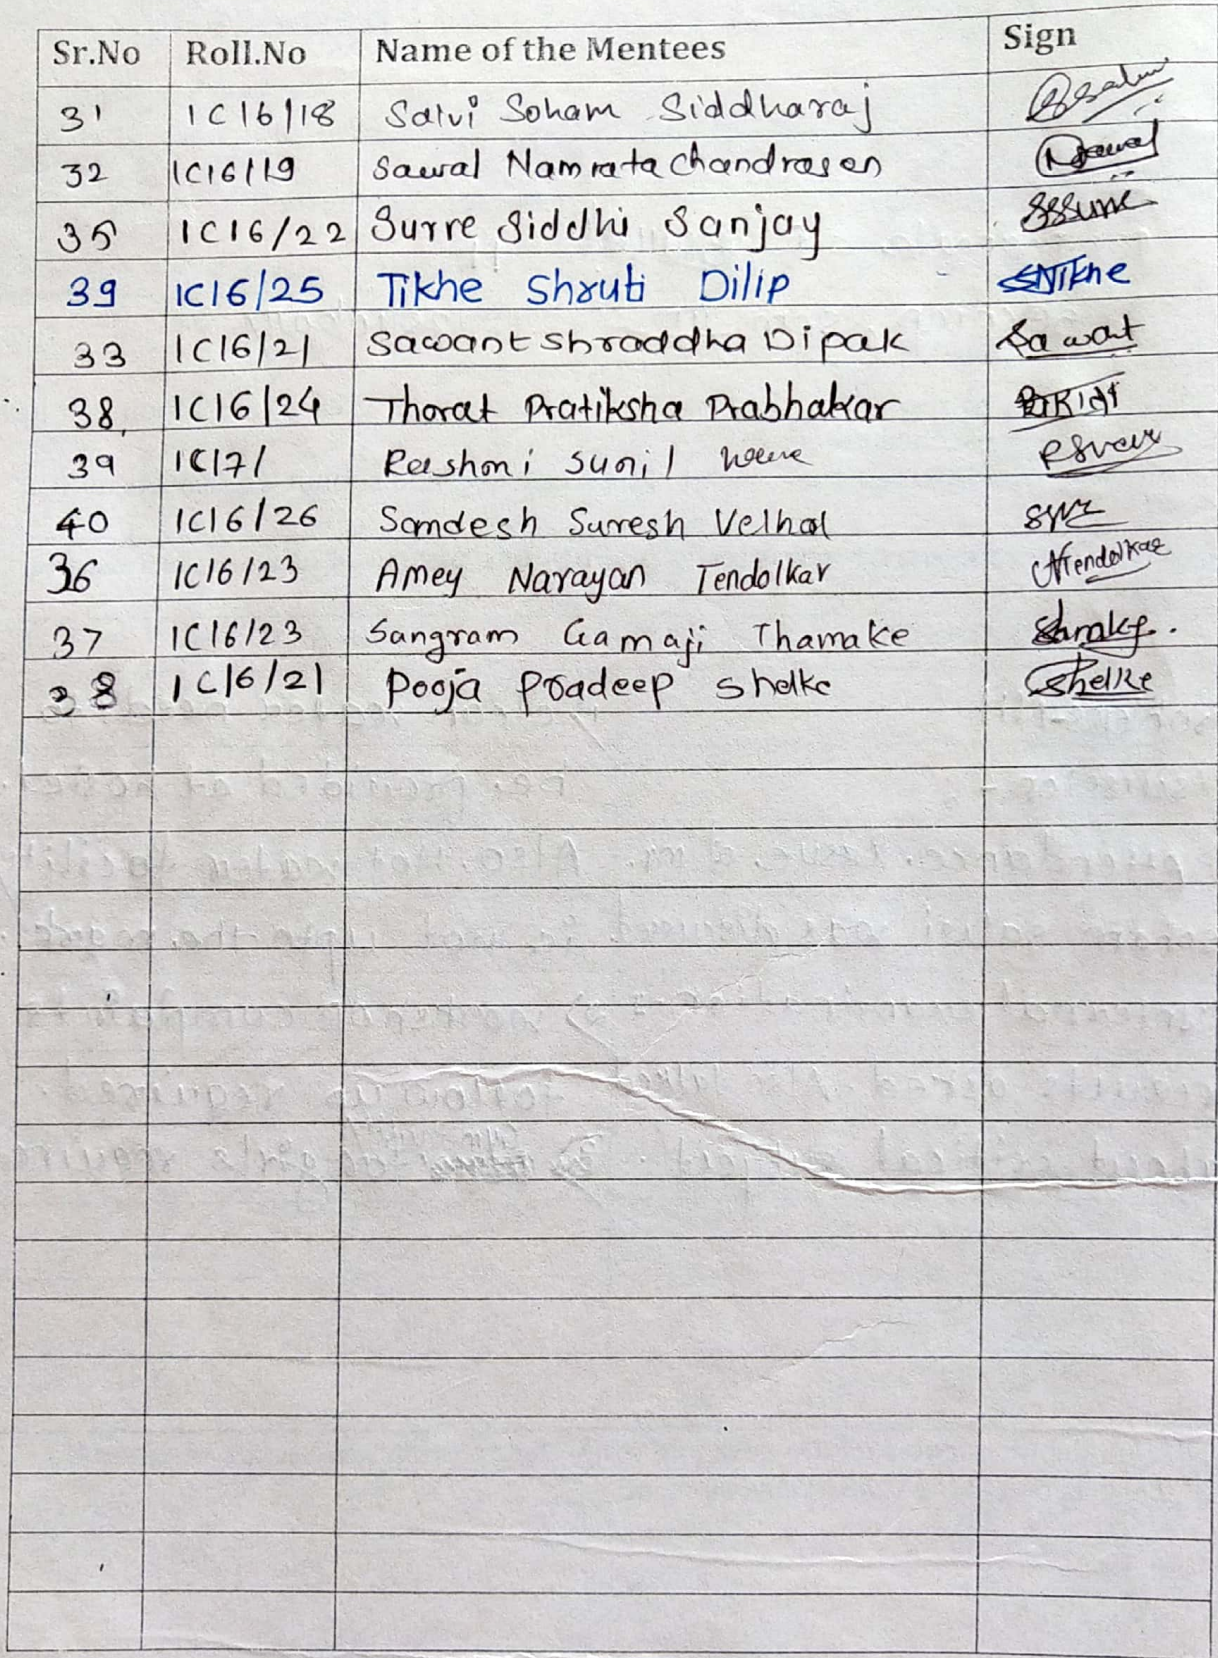 Sr.No Roll.No Name of the Mentees Sign
31 1C16/18 Salvi Soham Siddharaj
32 1C16/19 Sawal Namrata Chandrasen
35 1C16/22 Surre Siddhi Sanjay
39 1C16/25 Tikhe Shruti Dilip
33 1C16/21 Sawant Shraddha Dipak Sawant
38, 1C16/24 Thorat Pratiksha Prabhakar
39 1C17/ Reshoni Sunil
40 1C16/26 Samdesh Suresh Velhal
36 1C16/23 Amey Narayan Tendolkar ATendolkar
37 1C16/23 Sangram Gamaji Thamake
38 1C16/21 Pooja Pradeep Shelke Shelke